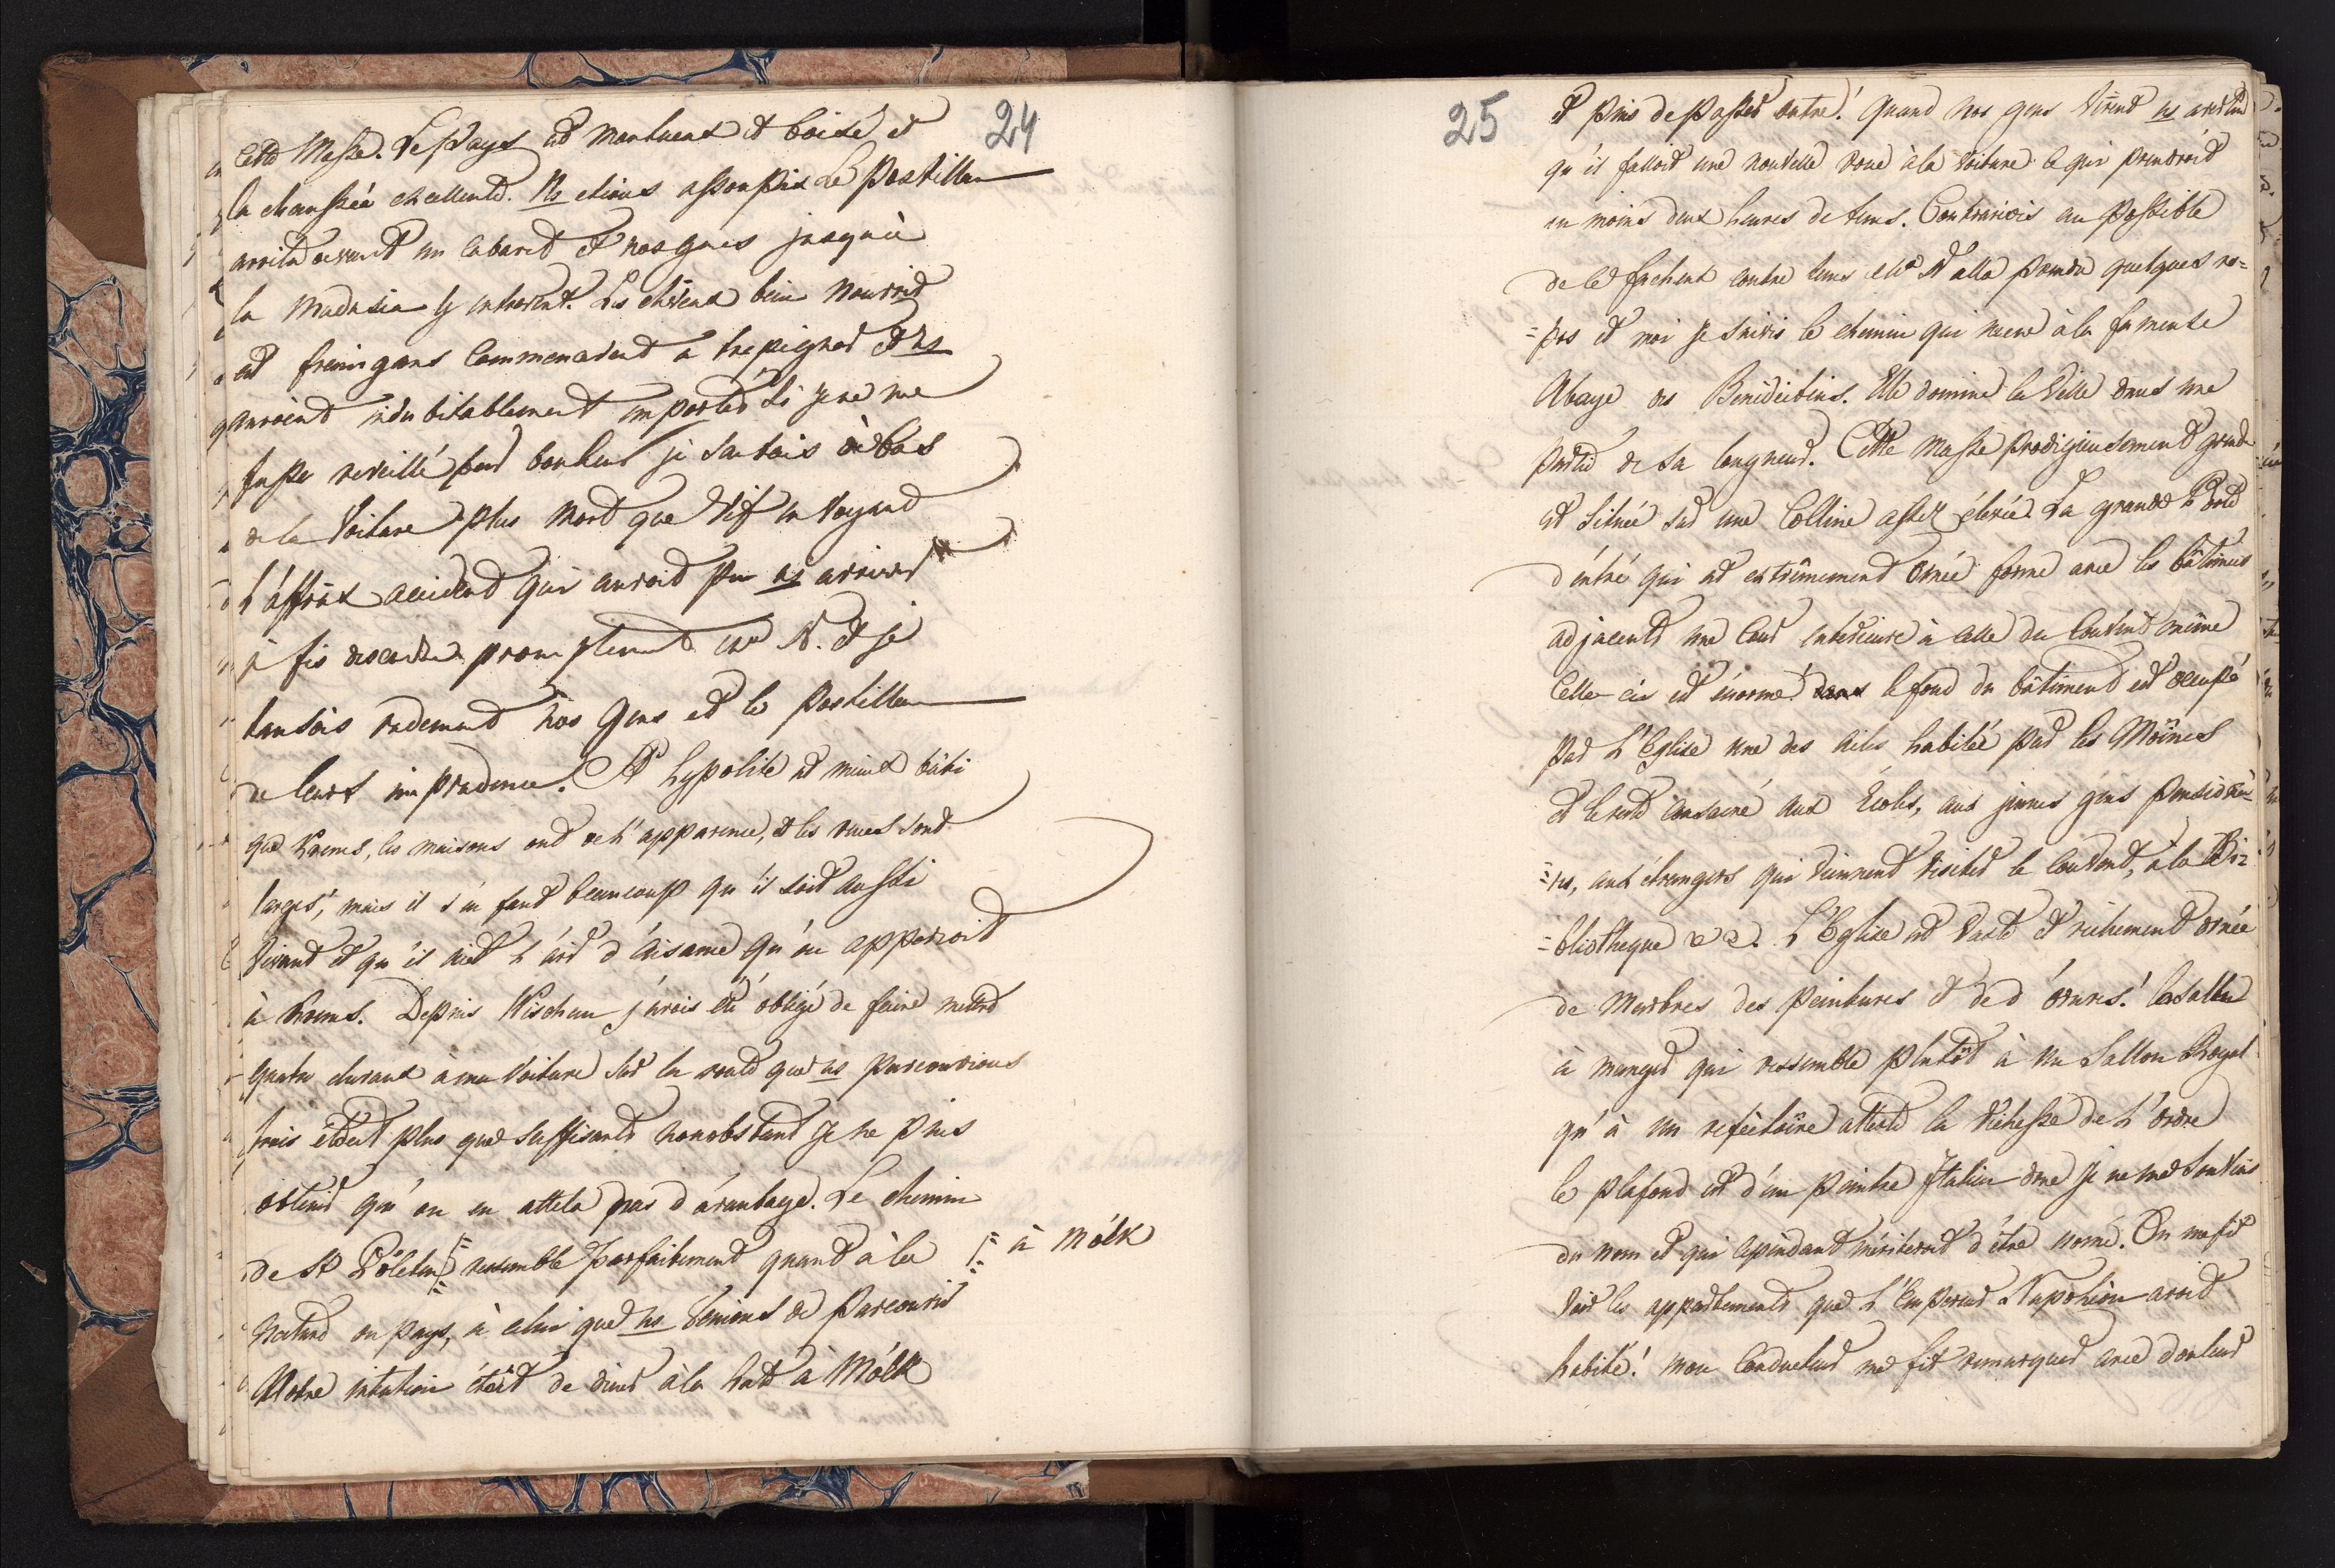 24
cette Masse. Le Pays est montueux et boisé et
la chaussée excellente. Ns etions assoupis Le Postillon
arreta devant un Cabaret et nos gens jusqu'à
la Madasia y entrerent. Les chevaux bien nourris
et fringans commencerent a trepigner et ns
auroient indubitablement emportés si je ne me
fusse reveillé par bonheur je sautois à bas
de la Voiture plus Mort que Vif en Voyant
l'affreux accident qui auroit pu ns arriver
je fis descendre promptement Me N. et je
tansois rudement nos Gens et le Postillon
de leurs imprudence. St Hypolite est mieux bâti
que Krems, les maisons ont de l'apparence, et les rues sont
larges, mais il s'en faut beaucoup qu'il soit aussi
Vivant et qu'il ait l'air d'aisance qu'on apperçoit
à Krems. Depuis Wischau j'avois été obligé de faire mettre
quatre chevaux à ma Voiture sur la route que ns parcourions
trois etoient plus que suffisants nonobstant je ne pus
obtenir qu'on en attela pas d'avantage. Le chemin
de St Pölten |: ressemble parfaitement quant à la |: à Mölk
Nature du pays, à celui que ns Venions de Parcourir
Notre intention étoit de diner à la hate à Mölk
25
et puis de Passer outre! Quand nos gens Virent ns avertir
qu'il falloit une nouvelle roue à la Voiture ce qui prendroit
au moins deux heures de tems. Contrariés au Possible
de ce facheux contre tems Me N alla prendre quelques re=
=pos et moi je suivis le chemin qui mene à la fameuse
Abaye des Benedictins. Elle domine la Ville dans une
partie de sa longueur. Cette Masse prodigieusement grande
est située sur une Colline assez élevée. La grande Porte
d'entré qui est extrêmement ornée forme avec les bâtimens
adjacents une Cour Interieure à celle du Couvent même
Celle-ci est énorme! le fond du bâtiment est occupé
par l'Eglise une des Ailes habitée par les Moines
et le reste consacré aux Écoles, aux jeunes gens Pensionai=
=res, aux étrangers qui viennent Visiter le Couvent, à la Bi=
=bliotheque &c. L'Eglise est Vaste et richement ornée
de Marbres des Peintures et de dorures! la salle
à manger qui ressemble plutôt à un Sallon Royal
qu'à un refectoire atteste la richesse de l'ordre
le plafond est d'un peintre Italien dont je ne me souviens
du nom et qui cependant mériteroit d'être nomé. On me fit
Voir les appartements que l'Empereur Napoléon avoit
habité! mon Conducteur me fit remarquer avec douleur